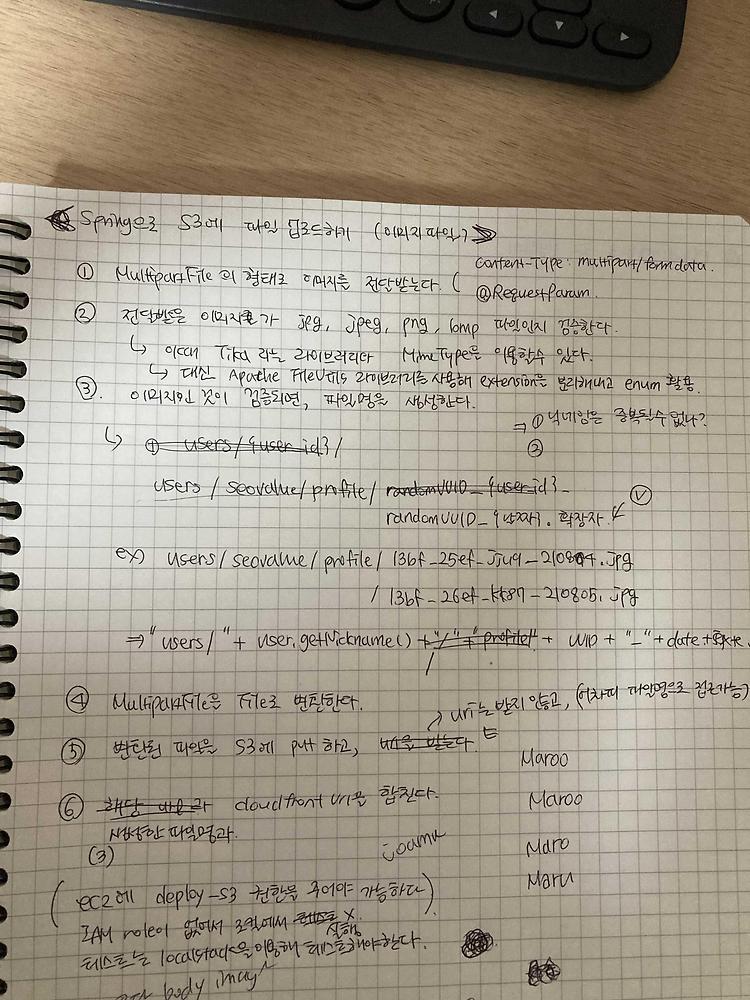 Spring으로 S3에 파일 업로드하기 (이미지파일?)
Content-Type: multipart/formdata.
① MultipartFile 의 형태로 이미지를 전달받는다. (
@RequestParam.
② 전달받은 이미지가 jpg, jpeg, png, bmp 파일인지 검증한다.
↳ 이때 Tika 라는 라이브러리나 MimeType을 이용할수 있다.
↳ 대신 Apache FileUtils 라이브러리를 사용해 extension을 분리해내고 enum 활용.
③. 이미지인 것이 검증되면, 파일명을 생성한다.
⇒ ① 닉네임은 중복될수 없나?
②
↳ ① users/{user_id}/
users / seovalue/profile/ randomUUID_{user_id}_
randomUUID_{날짜}. 확장자. ✓
ex) users/ seovalue / profile / 13bf_25ef_JJu9_210804.jpg
/ 13bf_26ef_kt87_210805.jpg
⇒ "users/" + user.getNickname() + "/" + "profile" + UUID + "_" + date +
/
④ MultipartFile을 File로 변환한다.
→ url는 받지 않고, (어차피 파일명으로 접근가능)
⑤ 변환된 파일을 S3에 put 하고, url을 받는다.
Maroo
⑥ 해당 url과 cloudfront url을 합친다.
Maroo
생성한 파일명과.
(3)
Maro
Maru
( ec2에 deploy-S3 권한을 주어야 가능하다 )
IAM role이 없어서 로컬에서 테스트 X.
실행
테스트는 localstack을 이용해 테스트해야한다.
body